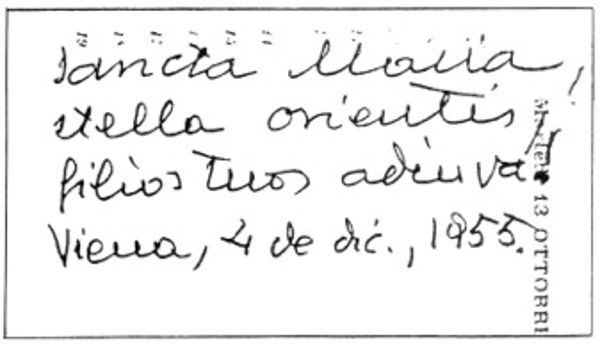 Sancta Maria,
stella orientis
filios tuos adiuva!
Viena, 4 de dic., 1955.
13 OTTOBRE